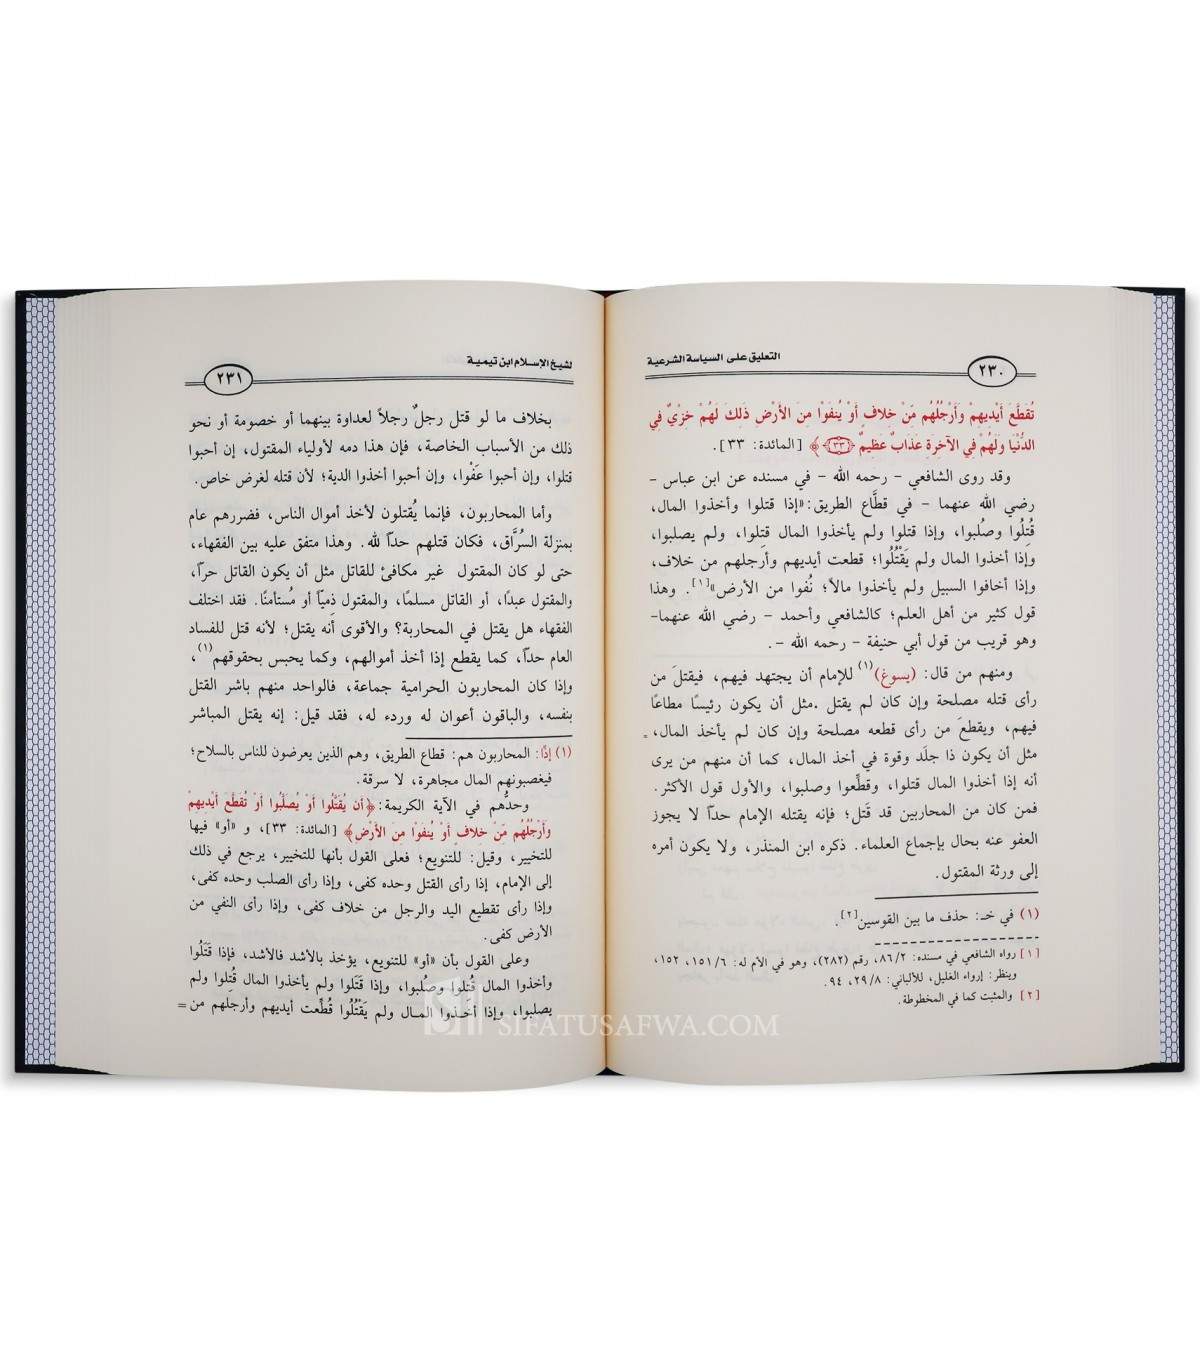 التعليق على السياسة الشرعية
٢٣٠
تُقَطَّعَ أَيْدِيهِمْ وَأَرْجُلُهُم مِّنْ خِلافٍ أَوْ يُنفَوْا مِنَ الأَرْضِ ذَلِكَ لَهُمْ خِزْيٌ فِي
الدُّنْيَا وَلَهُمْ فِي الآخِرَةِ عَذَابٌ عَظِيمٌ (٣٣)﴾ [المائدة: ٣٣].
وقد روى الشافعي - رحمه الله - في مسنده عن ابن عباس -
رضي الله عنهما - في قطَّاع الطريق: «إذا قتلوا وأخذوا المال،
قُتِلُوا وصُلبوا، وإذا قتلوا ولم يأخذوا المال قتلوا، ولم يصلبوا،
وإذا أخذوا المال ولم يَقْتُلُوا؛ قطعت أيديهم وأرجلهم من خلاف،
وإذا أخافوا السبيل ولم يأخذوا مالاً؛ نُفوا من الأرض»[١]. وهذا
قول كثير من أهل العلم؛ كالشافعي وأحمد - رضي الله عنهما-
وهو قريب من قول أبي حنيفة - رحمه الله -.
ومنهم من قال: (يسوغ)(١) للإمام أن يجتهد فيهم، فيقتلَ من
رأى قتله مصلحة وإن كان لم يقتل .مثل أن يكون رئيسًا مطاعًا
فيهم، ويقطعَ من رأى قطعه مصلحة وإن كان لم يأخذ المال، =
مثل أن يكون ذا جلَد وقوة في أخذ المال، كما أن منهم من يرى
أنه إذا أخذوا المال قتلوا، وقطِّعوا وصلبوا، والأول قول الأكثر.
فمن كان من المحاربين قد قَتل؛ فإنه يقتله الإمام حدًا لا يجوز
العفو عنه بحال بإجماع العلماء. ذكره ابن المنذر، ولا يكون أمره
إلى ورثة المقتول.
(١) في خـ: حذف ما بين القوسين[٢].
[١] رواه الشافعي في مسنده: ٨٦/٢، رقم (٢٨٢)، وهو في الأم له: ١٥١/٦، ١٥٢،
وينظر: إرواء الغليل، للألباني: ٢٩/٨، ٩٤.
[٢] والمثبت كما في المخطوطة.
لشيخ الإسلام ابن تيمية
٢٣١
بخلاف ما لو قتل رجلٌ رجلاً لعداوة بينهما أو خصومة أو نحو
ذلك من الأسباب الخاصة، فإن هذا دمه لأولياء المقتول، إن أحبوا
قتلوا، وإن أحبوا عَفْوا، وإن أحبوا أخذوا الدية؛ لأن قتله لغرض خاص.
وأما المحاربون، فإنما يُقتلون لأخذ أموال الناس، فضررهم عام
بمنزلة السُرَّاق، فكان قتلهم حدًا لله. وهذا متفق عليه بين الفقهاء،
حتى لو كان المقتول غير مكافئ للقاتل مثل أن يكون القاتل حرًا،
والمقتول عبدًا، أو القاتل مسلمًا، والمقتول ذميًا أو مُستأمنًا. فقد اختلف
الفقهاء هل يقتل في المحاربة؟ والأقوى أنه يقتل؛ لأنه قتل للفساد
العام حدًا، كما يقطع إذا أخذ أموالهم، وكما يحبس بحقوقهم(١)،
وإذا كان المحاربون الحرامية جماعة، فالواحد منهم باشر القتل
بنفسه، والباقون أعوان له وردء له، فقد قيل: إنه يقتل المباشر
(١) إذًا: المحاربون هم: قطاع الطريق، وهم الذين يعرضون للناس بالسلاح؛
فيغصبونهم المال مجاهرة، لا سرقة.
وحدُّهم في الآية الكريمة: ﴿أَن يُقَتَّلُوا أَوْ يُصَلَّبُوا أَوْ تُقَطَّعَ أَيْدِيهِمْ
وَأَرْجُلُهُم مِّنْ خِلافٍ أَوْ يُنفَوْا مِنَ الأَرْضِ﴾ [المائدة: ٣٣]، و «أو» فيها
للتخيير، وقيل: للتنويع؛ فعلى القول بأنها للتخيير، يرجع في ذلك
إلى الإمام، إذا رأى القتل وحده كفى، وإذا رأى الصلب وحده كفى،
وإذا رأى تقطيع اليد والرجل من خلاف كفى، وإذا رأى النفي من
الأرض كفى.
وعلى القول بأن «أو» للتنويع، يؤخذ بالأشد فالأشد، فإذا قَتَلُوا
وأخذوا المال قُتلوا وصُلبوا، وإذا قَتَلوا ولم يأخذوا المال قُتِلوا ولم
يصلبوا، وإذا أخذوا المال ولم يَقْتُلُوا قُطِّعت أيديهم وأرجلهم من =
SIFATUSAFWA.COM